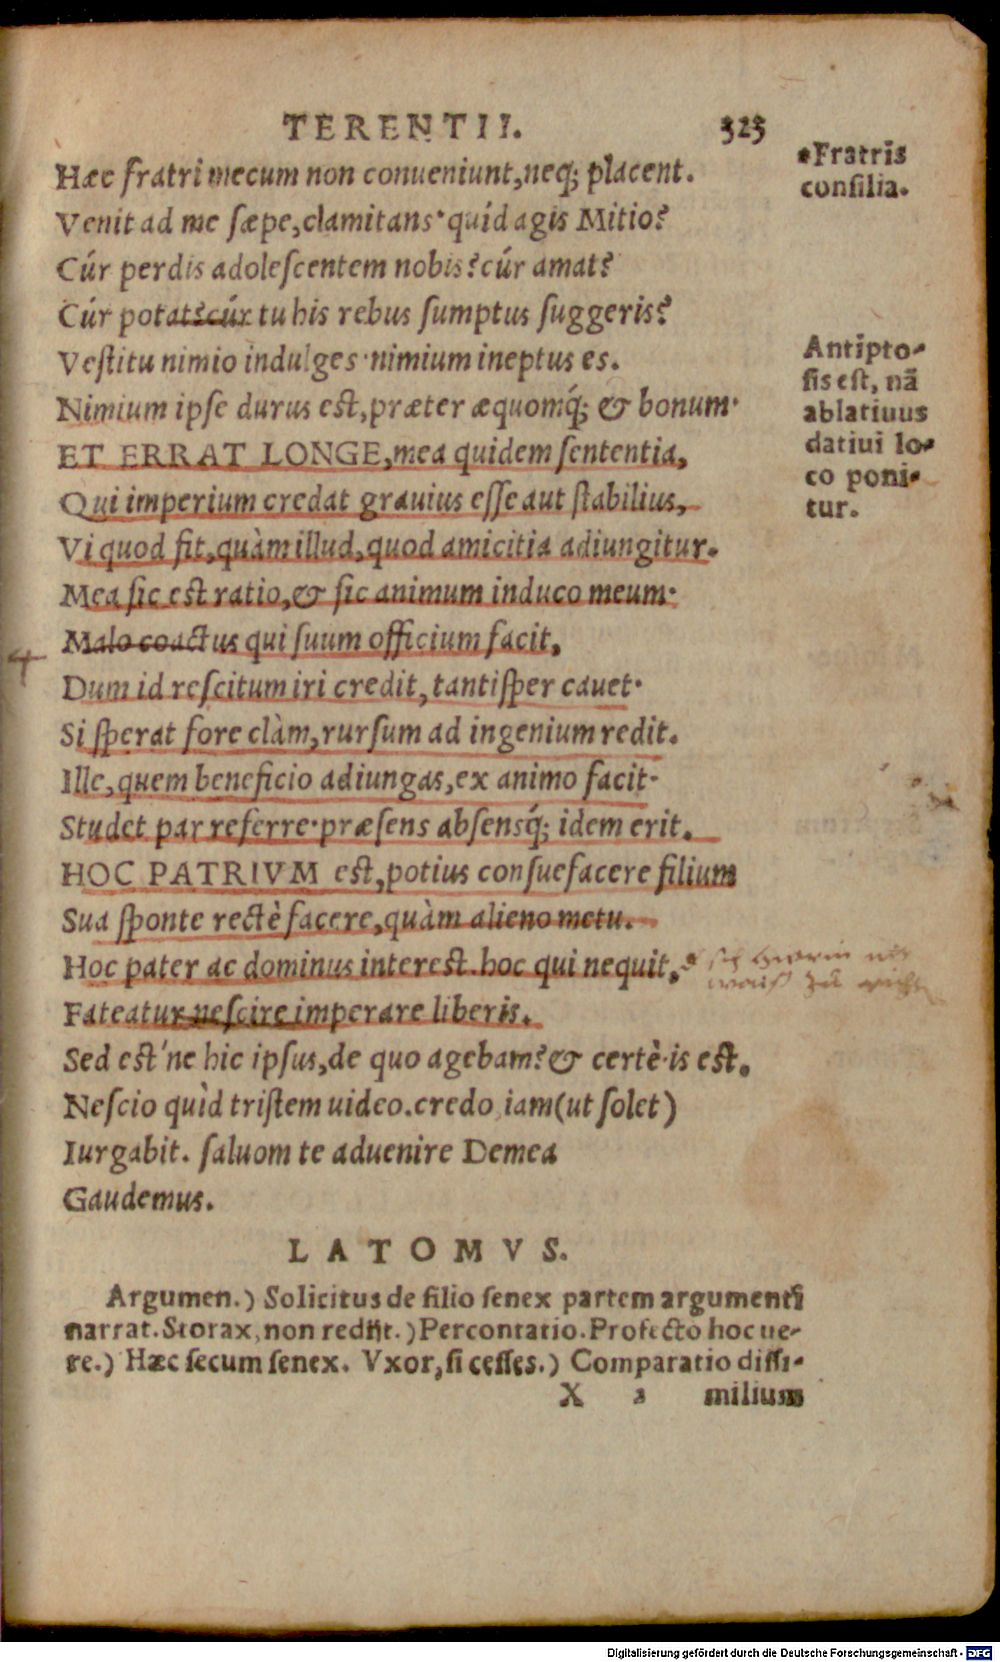 TERENTII. 323
Hæc fratri mecum non conueniunt,neq; placent.
*Fratris
consilia.
Venit ad me sæpe,clamitans·quid agis Mitio?
Cúr perdis adolescentem nobis?cúr amat?
Cúr potat?cúr tu his rebus sumptus suggeris?
Vestitu nimio indulges·nimium ineptus es.
Antipto-
sis est, nã
ablatiuus
datiui lo-
co poni-
tur.
Nimium ipse durus est,præter æquomq́; & bonum·
ET ERRAT LONGE,mea quidem sententia,
Qui imperium credat grauius esse aut stabilius,
Vi quod fit,quàm illud,quod amicitia adiungitur.
Mea sic est ratio,& sic animum induco meum·
Malo coactus qui suum officium facit,
Dum id rescitum iri credit, tantisper cauet·
Si sperat fore clàm,rursum ad ingenium redit.
Ille,quem beneficio adiungas,ex animo facit·
Studet par referre·præsens absensq́; idem erit.
HOC PATRIVM est,potius consuefacere filium
Sua sponte rectè facere,quàm alieno metu.
Hoc pater ac dominus interest.hoc qui nequit,
Fateatur nescire imperare liberis.
Sed est'ne hic ipsus,de quo agebam?& certè·is est.
Nescio quìd tristem uideo.credo iam(ut solet)
Iurgabit. saluom te aduenire Demea
Gaudemus.
LATOMVS.
Argumen.) Solicitus de filio senex partem argumenti
narrat.Storax,non redijt.)Percontatio.Profecto hoc ue-
re.) Hæc secum senex. Vxor,si cesses.) Comparatio dissi-
X 2 milium
Digitalisierung gefördert durch die Deutsche Forschungsgemeinschaft - DFG